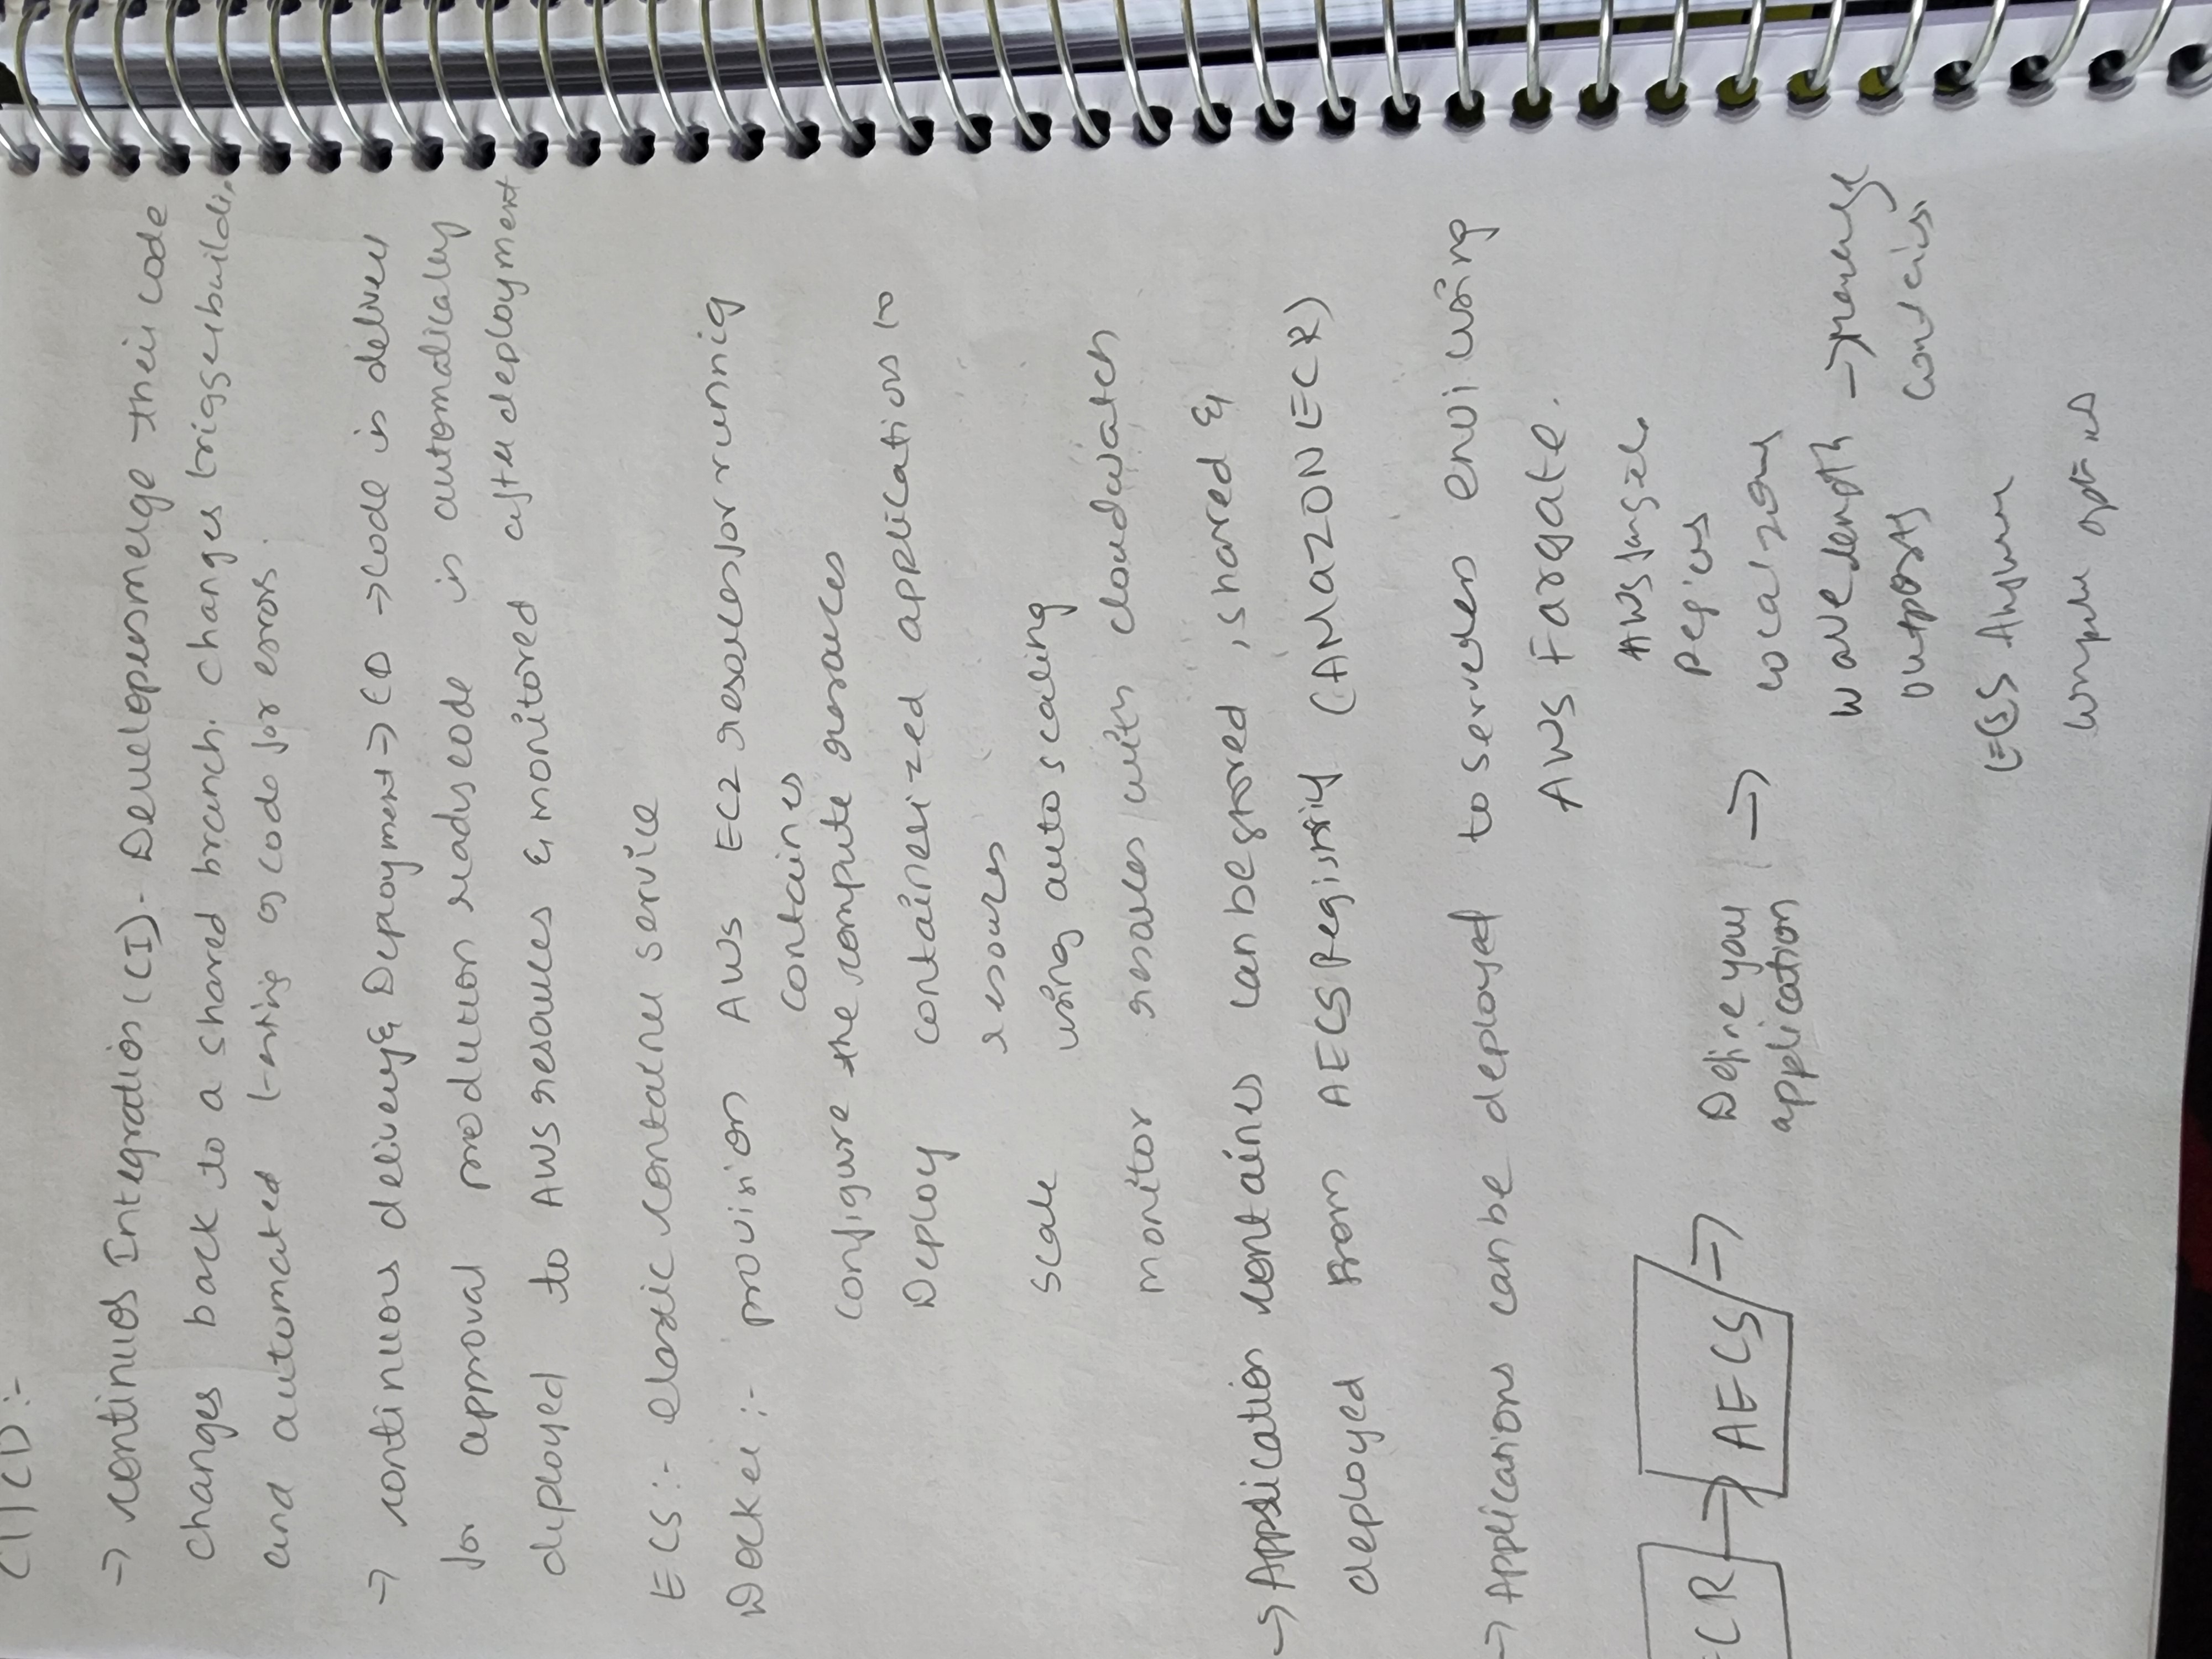 CI/CD :-
→ continuos Integration (CI). Developers merge their code
changes back to a shared branch. changes trigger build
and automated testing of code for errors.
→ continuous delivery & Deployment → CD → code is deliver
for approval production ready code is automatically
deployed to AWS resources & monitored after deployment
ECS :- elastic container service
Docker :- provision AWS EC2 resources for runnig
containes
configure the compute resources
Deploy containerized applications to
resources
scale using auto scaling
monitor resources with cloudwatch
→ Application containes can be stored , shared &
deployed from AECS Registriy (AMAZON ECR)
→ Applications can be deployed to serverless envi using
AWS Fargate.
AWS fargate
Regions
ECR → AECS → Define your →
application
local zones
wavelength → manage
outposts contains
ECS Anywhere
compute options